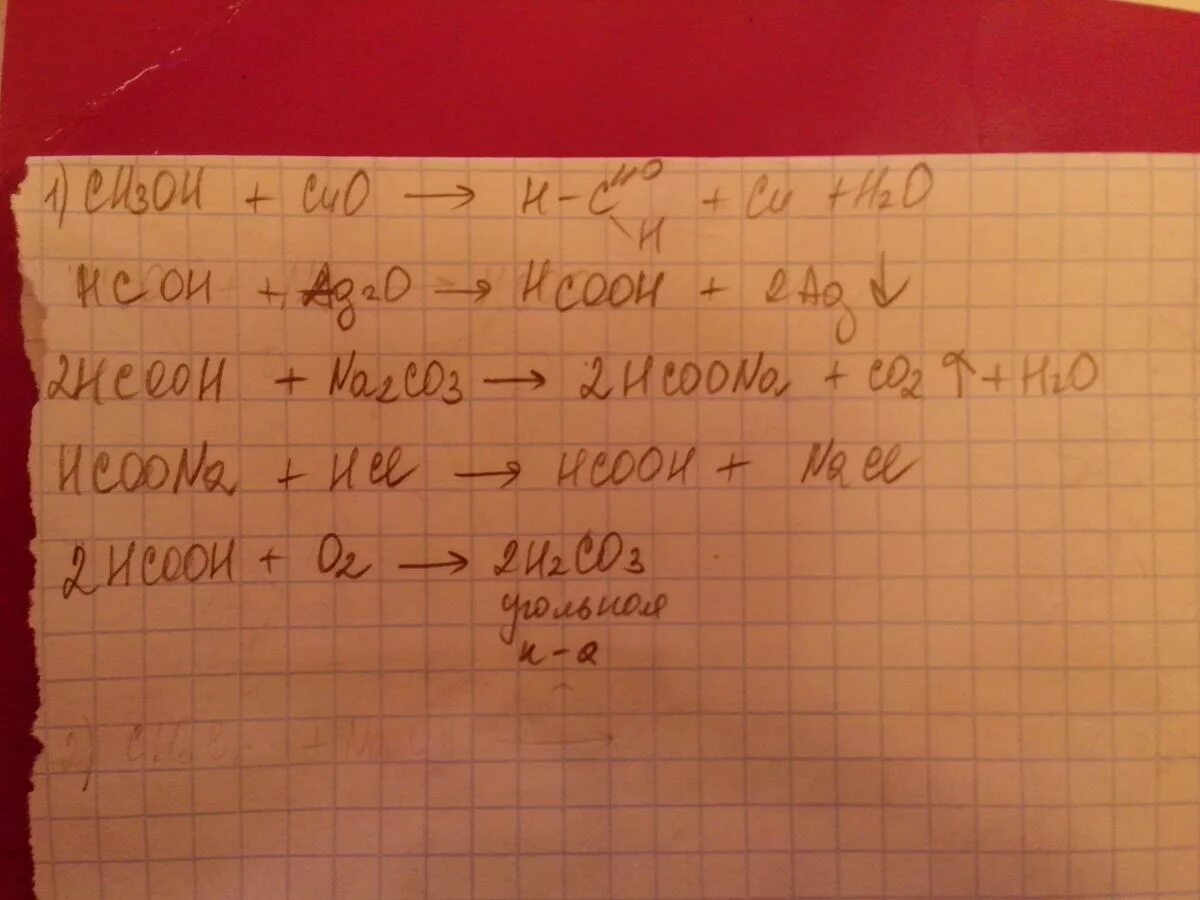 1) CH3OH + CuO → H-C=O + Cu + H2O
\H
HCOH + Ag2O → HCOOH + 2Ag ↓
2HCOOH + Na2CO3 → 2HCOONa + CO2 ↑ + H2O
HCOONa + HCl → HCOOH + NaCl
2HCOOH + O2 → 2H2CO3
угольная
к-а
2)